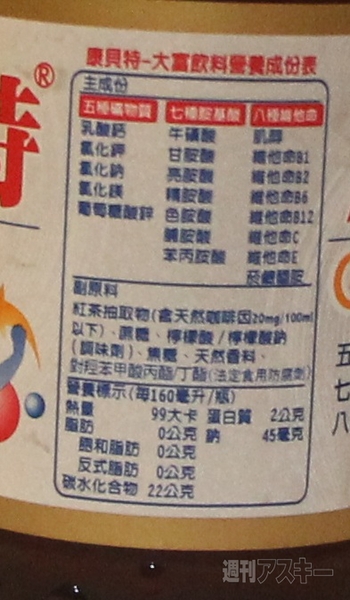 康貝特-大富飲料營養成份表
®
主成份
五種礦物質 七種胺基酸 八種維他命
乳酸鈣 牛磺酸 肌醇
氯化鉀 甘胺酸 維他命B1
氯化鈉 亮胺酸 維他命B2
氯化鎂 精胺酸 維他命B6
葡萄糖酸鋅 色胺酸 維他命B12
維他命C
苯丙胺酸 維他命E
菸鹼醯胺
副原料
紅茶抽取物(含天然咖啡因20mg/100ml
以下)、蔗糖、檸檬酸/檸檬酸鈉
(調味劑)、焦糖、天然香料、
對羥苯甲酸丙酯/丁酯(法定食用防腐劑)
營養標示(每160毫升/瓶)
熱量 99大卡 蛋白質 2公克
脂肪 0公克 鈉 45毫克
飽和脂肪 0公克
反式脂肪 0公克
碳水化合物 22公克
五
七
八
週刊アスキー